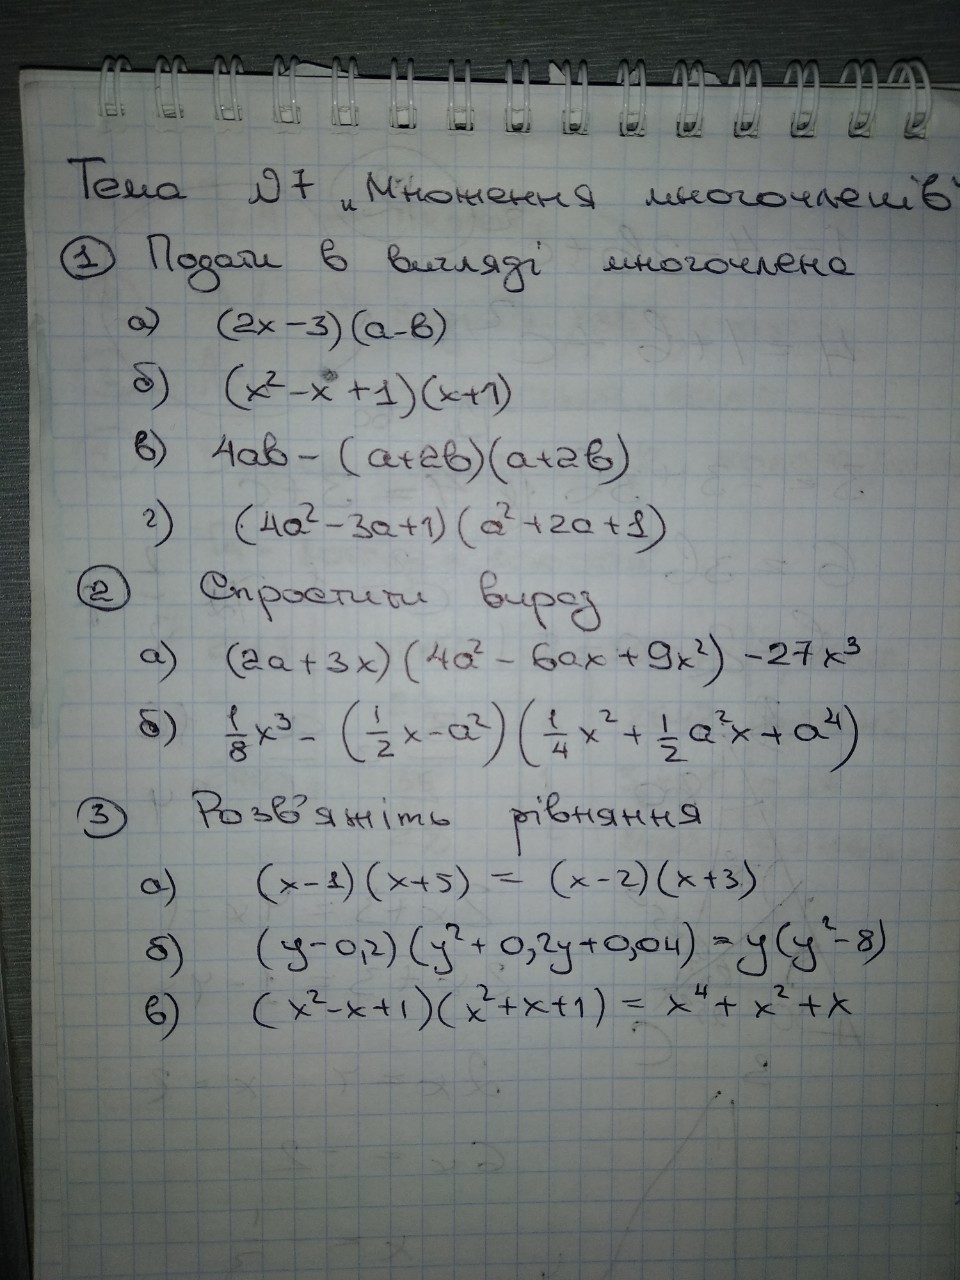 Тема №7 "Множення многочленів"
1 Подати в вигляді многочлена
а) (2x-3)(a-b)
б) (x²-x+1)(x+1)
в) 4ab-(a+2b)(a+2b)
г) (4a²-3a+1)(a²+2a+1)
2 Спростити вираз
а) (2a+3x)(4a²-6ax+9x²)-27x³
б) 1/8x³-(1/2x-a²)(1/4x²+1/2a²x+a⁴)
3 Розв'яжіть рівняння
а) (x-1)(x+5)=(x-2)(x+3)
б) (y-0,2)(y²+0,2y+0,04)=y(y²-8)
в) (x²-x+1)(x²+x+1)=x⁴+x²+x